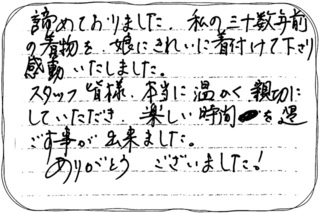 諦めておりました。私の三十数年前
の着物を、娘にきれいに着付けて下さり
感動いたしました。
スタッフ皆様、本当に温かく親切に
していただき、楽しい時間を過
ごす事が出来ました。
ありがとうございました!